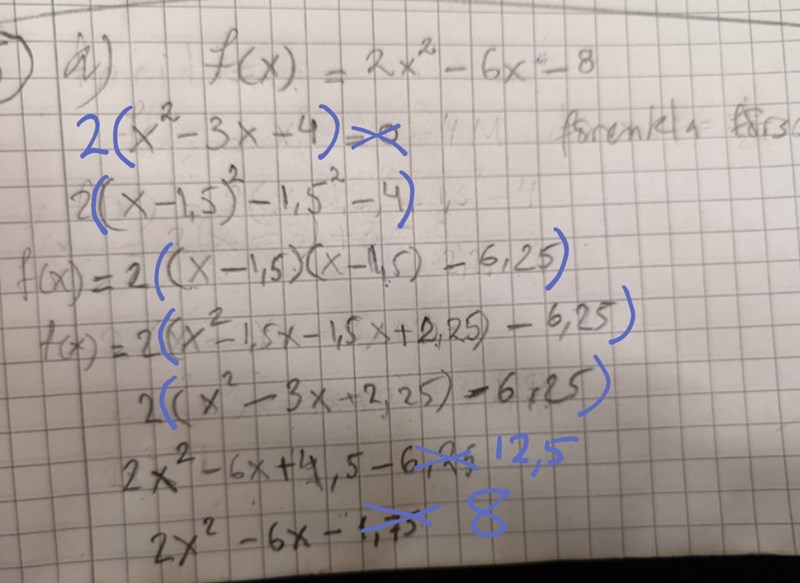 a) f(x) = 2x² - 6x - 8
2(x² - 3x - 4) = 0
2((x - 1,5)² - 1,5² - 4)
f(x) = 2((x - 1,5)(x - 1,5) - 6,25)
f(x) = 2((x² - 1,5x - 1,5x + 2,25) - 6,25)
2((x² - 3x + 2,25) - 6,25)
2x² - 6x + 4,5 - 6,25 12,5
2x² - 6x - 1,75 8